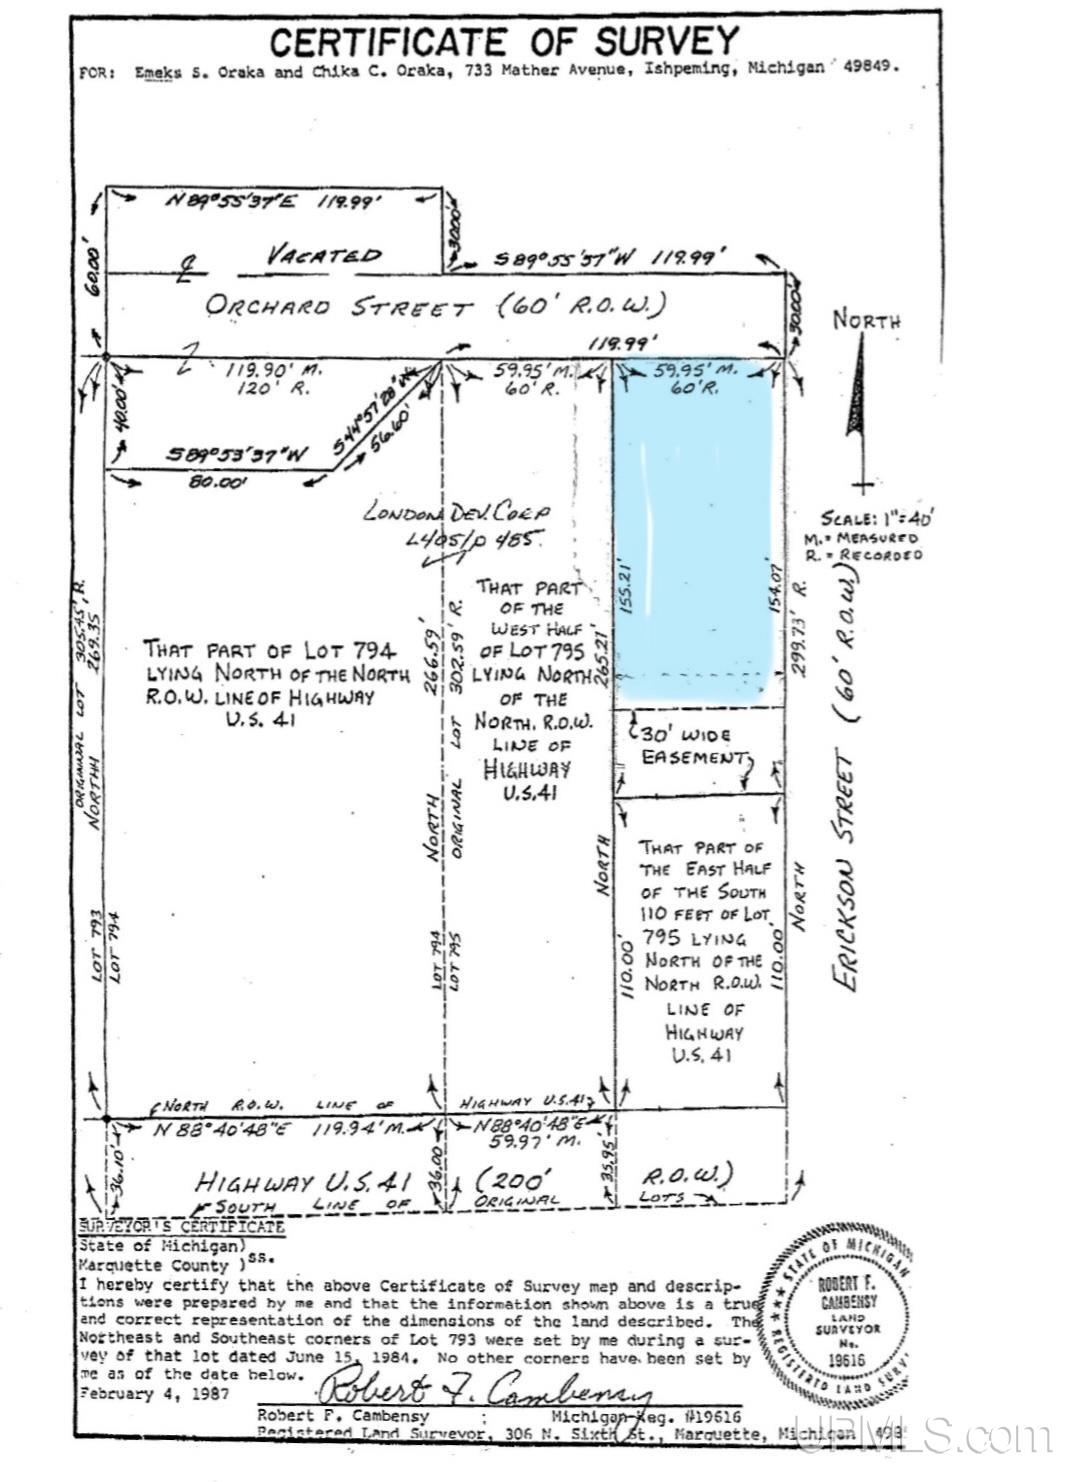 CERTIFICATE OF SURVEY
FOR: Emeks S. Oraka and Chika C. Oraka, 733 Mather Avenue, Ishpeming, Michigan 49849.
N 89°55'37"E 119.99'
30.00'
60.00'
VACATED
S 89°55'37"W 119.99'
ORCHARD STREET (60' R.O.W.)
30.00'
NORTH
119.99'
119.90' M.
120' R.
59.95' M.
60' R.
59.95' M.
60' R.
40.00'
S 44°57'28"W
56.60'
S 89°53'37"W
80.00'
LONDON DEV. CORP
L405/P 455
SCALE: 1"=40'
M. = MEASURED
R. = RECORDED
ORIGINAL LOT 305.45' R.
269.35'
NORTH
THAT PART OF LOT 794
LYING NORTH OF THE NORTH
R.O.W. LINE OF HIGHWAY
U.S. 41
266.59'
302.59' R.
NORTH
ORIGINAL LOT
THAT PART
OF THE
WEST HALF
OF LOT 795
LYING NORTH
OF THE
NORTH. R.O.W.
LINE OF
HIGHWAY
U.S. 41
155.21'
265.21'
154.07'
299.73' R.
30' WIDE
EASEMENT
ERICKSON STREET (60' R.O.W.)
NORTH
NORTH
THAT PART OF
THE EAST HALF
OF THE SOUTH
110 FEET OF LOT
795 LYING
NORTH OF THE
NORTH R.O.W.
LINE OF
HIGHWAY
U.S. 41
110.00'
110.00'
LOT 793
LOT 794
LOT 794
LOT 795
NORTH R.O.W. LINE OF HIGHWAY U.S. 41
N 88°40'48"E 119.94' M.
N 88°40'48"E
59.97' M.
36.10'
36.00
35.95'
HIGHWAY U.S. 41 (200' R.O.W.)
SOUTH LINE OF ORIGINAL LOTS
SURVEYOR'S CERTIFICATE
State of Michigan)
Marquette County )ss.
I hereby certify that the above Certificate of Survey map and descrip-
tions were prepared by me and that the information shown above is a true
and correct representation of the dimensions of the land described. The
Northeast and Southeast corners of Lot 793 were set by me during a sur-
vey of that lot dated June 15, 1984. No other corners have been set by
me as of the date below.
February 4, 1987
Robert F. Cambensy
Robert F. Cambensy : Michigan Reg. #19616
Registered Land Surveyor, 306 N. Sixth St., Marquette, Michigan 498
STATE OF MICHIGAN
ROBERT F.
CAMBENSY
LAND
SURVEYOR
No.
19616
REGISTERED LAND SURV
UPMLS.com